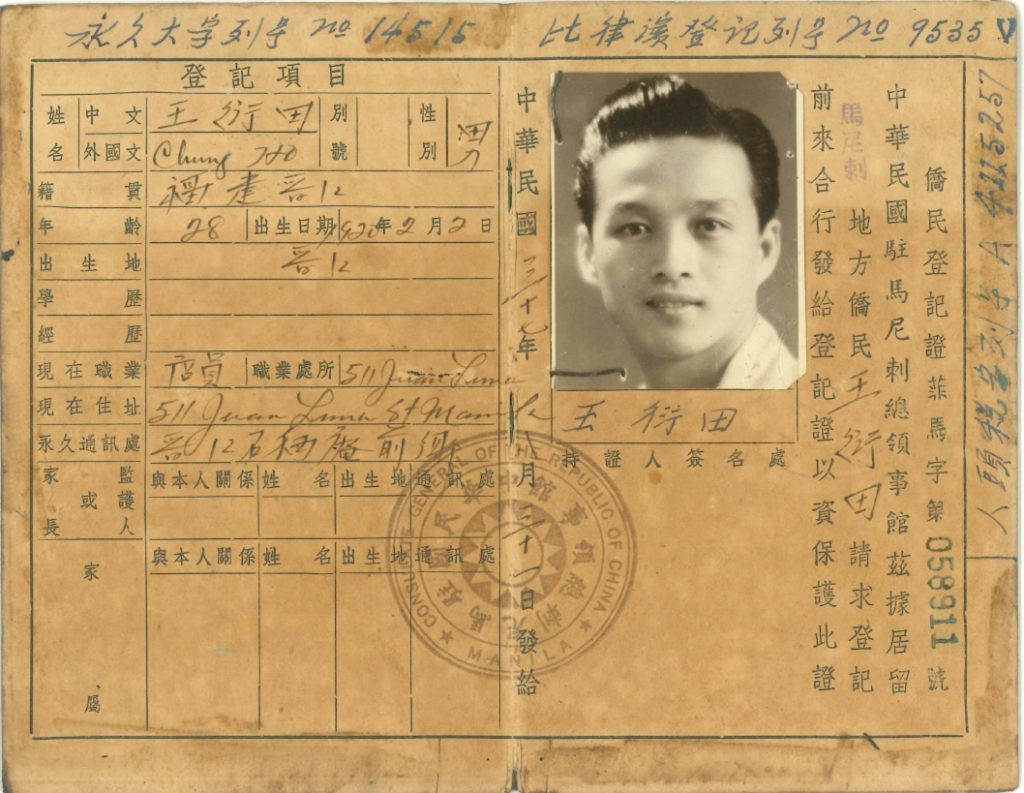 永久大字列字 no 14515
比律濱登記列字 no 9535
人頭稅字列字 A 4415257
登記項目
姓名 中文 王衍田 別號 性別 男
外國文 Chung Ho
籍貫 福建晋江
年齡 28 出生日期 1920年2月2日
出生地 晋江
學歷
經歷
現在職業 店員 職業處所 511 Juan Luna
現在住址 511 Juan Luna St Manila
永久通訊處 晋江石
家長或監護人 與本人關係 姓名 出生地 通訊處
家屬 與本人關係 姓名 出生地 通訊處
僑民登記證菲馬字第058911號
中華民國駐馬尼剌總領事館茲據居留
馬尼剌地方僑民王衍田請求登記
前來合行發給登記證以資保護此證
王衍田
持證人簽名處
中華民國三十七年八月三十一日發給
CONSULATE GENERAL OF THE REPUBLIC OF CHINA
中華民國駐馬尼剌總領事館
MANILA